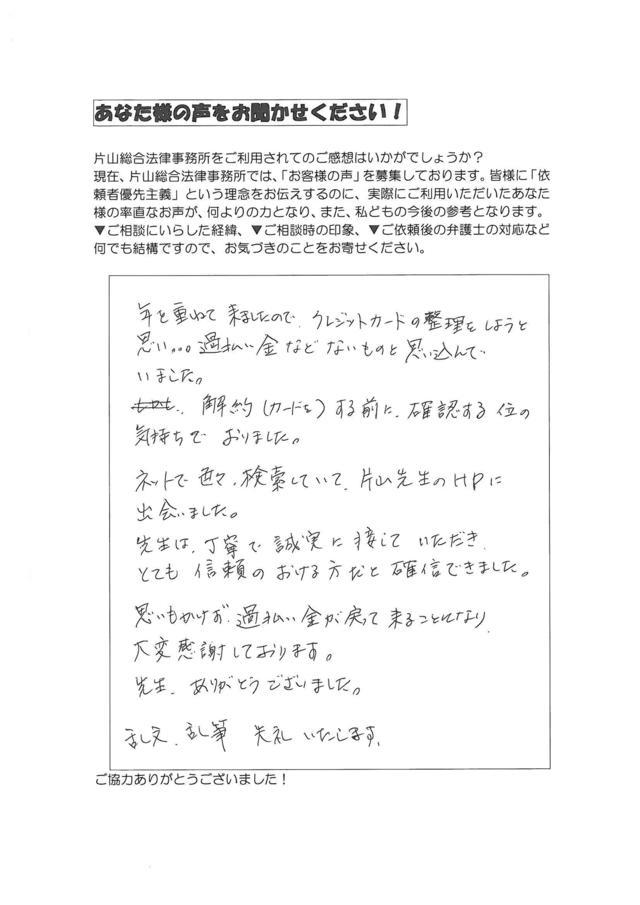 あなた様の声をお聞かせください！
片山総合法律事務所をご利用されてのご感想はいかがでしょうか？
現在、片山総合法律事務所では、「お客様の声」を募集しております。皆様に「依
頼者優先主義」という理念をお伝えするのに、実際にご利用いただいたあなた
様の率直なお声が、何よりの力となり、また、私どもの今後の参考となります。
▼ご相談にいらした経緯、▼ご相談時の印象、▼ご依頼後の弁護士の対応など
何でも結構ですので、お気づきのことをお寄せください。
年を重ねて来ましたので、クレジットカードの整理をしようと
思い。。。過払い金などないものと思い込んで
いました。
解約(カードを)する前に、確認する位の
気持ちでおりました。
ネットで色々、検索していて、片山先生のHPに
出会いました。
先生は、丁寧で誠実に接していただき、
とても信頼のおける方だと確信できました。
思いもかけず、過払い金が戻って来ることになり、
大変感謝しております。
先生、ありがとうございました。
乱文、乱筆 失礼いたします。
ご協力ありがとうございました！